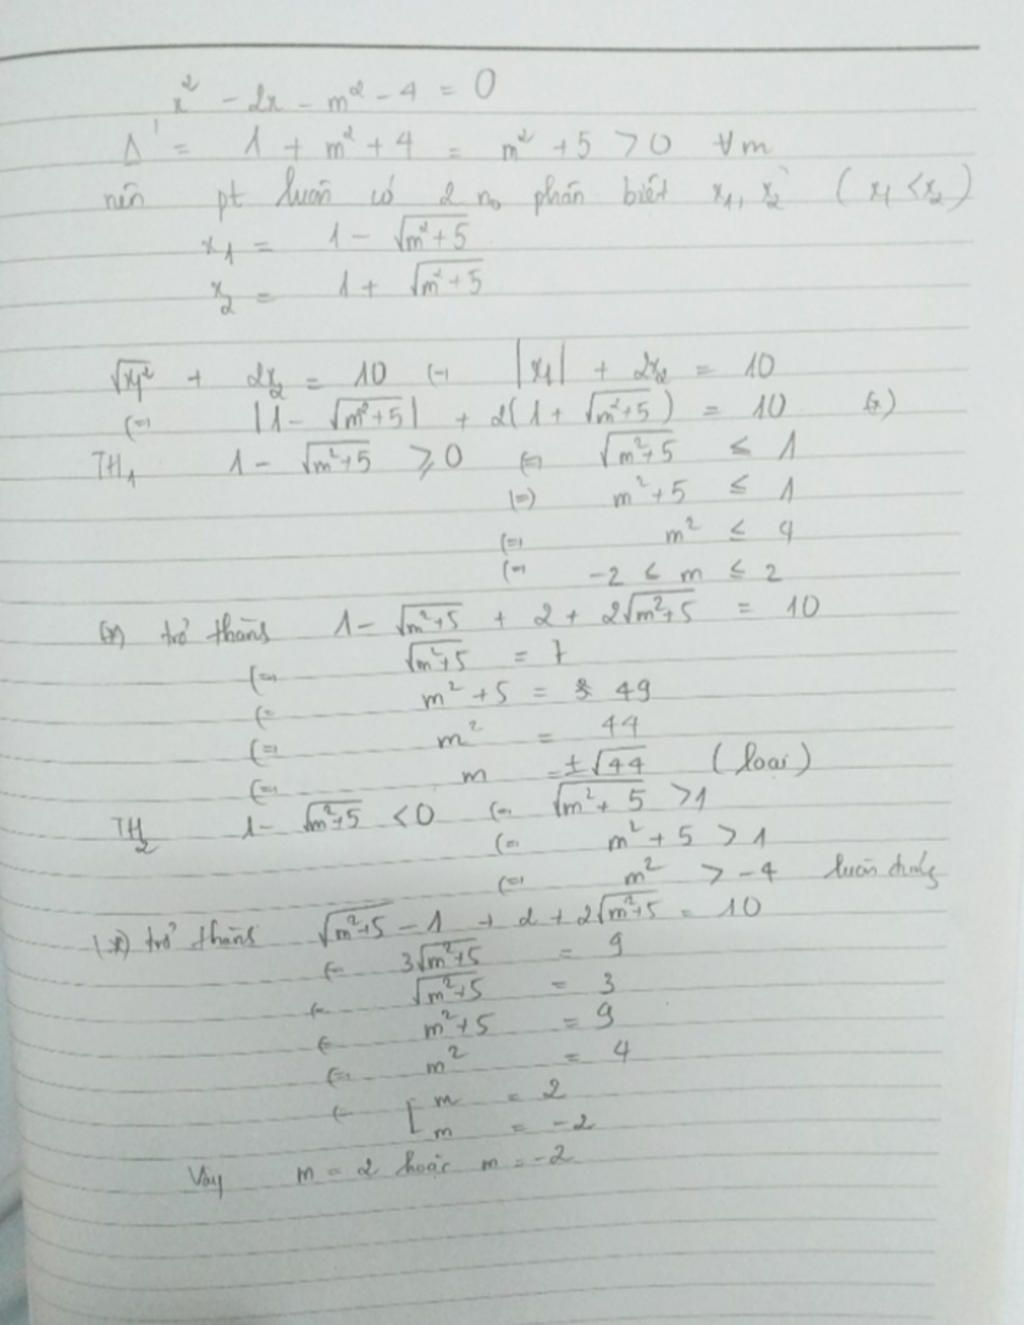 x² - 2x - m² - 4 = 0
Δ' = 1 + m² + 4 = m² + 5 > 0 ∀m
nên pt luôn có 2 n₀ phân biệt x₁, x₂ (x₁ < x₂)
x₁ = 1 - √(m²+5)
x₂ = 1 + √(m²+5)
√(x₁²) + 2x₂ = 10 (=) |x₁| + 2x₂ = 10
(=) |1 - √(m²+5)| + 2(1 + √(m²+5)) = 10 (*)
TH₁ 1 - √(m²+5) ≥ 0 (=) √(m²+5) ≤ 1
(=) m² + 5 ≤ 1
(=) m² ≤ 4
(=) -2 ≤ m ≤ 2
(*) trở thành 1 - √(m²+5) + 2 + 2√(m²+5) = 10
(=) √(m²+5) = 7
(=) m² + 5 = 49
(=) m² = 44
(=) m = ±√44 (loại)
TH₂ 1 - √(m²+5) < 0 (=) √(m²+5) > 1
(=) m² + 5 > 1
(=) m² > -4 luôn đúng
(*) trở thành √(m²+5) - 1 + 2 + 2√(m²+5) = 10
(=) 3√(m²+5) = 9
(=) √(m²+5) = 3
(=) m² + 5 = 9
(=) m² = 4
(=) [ m = 2
m = -2
Vậy m = 2 hoặc m = -2